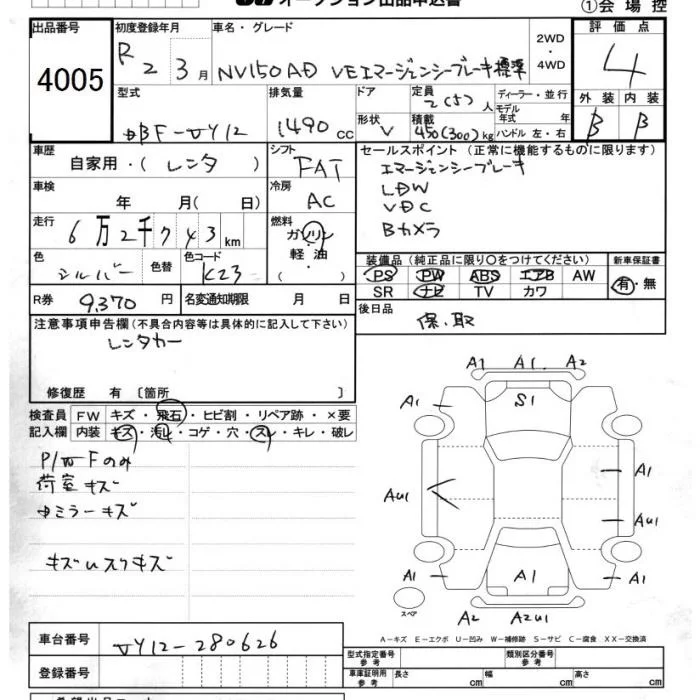 オークション出品申込書
①会場控
出品番号
4005
初度登録年月
R 2 3月
車名・グレード
NV150AD VEエマージェンシーブレーキ標準
2WD
・
4WD
評価点
4
外装 内装
B B
型式
DBF-VY12
排気量
1490 cc
ドア
形状
V
定員
2(5)人
積載
450(300)kg
ディーラー・並行
モデル
年式 年
ハンドル 左・右
車歴
自家用・(レンタ)
シフト
FAT
車検
年 月( 日)
冷房
AC
走行
6万2千7 43 km
燃料
ガソリン
・
軽油
・
( )
色
シルバー
色替
色コード
K23
R券 9,370 円
名変通知期限 月 日
セールスポイント(正常に機能するものに限ります)
エマージェンシーブレーキ
LDW
VDC
Bカメラ
装備品(純正品に限り○をつけてください)
PS PW ABS エアB AW
SR ナビ TV カワ
新車保証書
有・無
後日品
保、取
注意事項申告欄(不具合内容等は具体的に記入して下さい)
レンタカー
修復歴 有〔箇所 〕
検査員
記入欄
FW キズ・飛石・ヒビ割・リペア跡・×要
内装 キズ・汚れ・コゲ・穴・スレ・キレ・破レ
P/W Fのみ
荷室キズ
中ミラーキズ
キズUスリキズ
A1 A1 A2
A1 S1
A1
AU1
AU1
A1 A1 A1
A2 A2U1
スペア
A－キズ E－エクボ U－凹み W－補修跡 S－サビ C－腐食 XX－交換済
車台番号 VY12-280626
登録番号
型式指定番号
参考
類別区分番号
参考
車庫証明用
参考
長さ cm 幅 cm 高さ cm